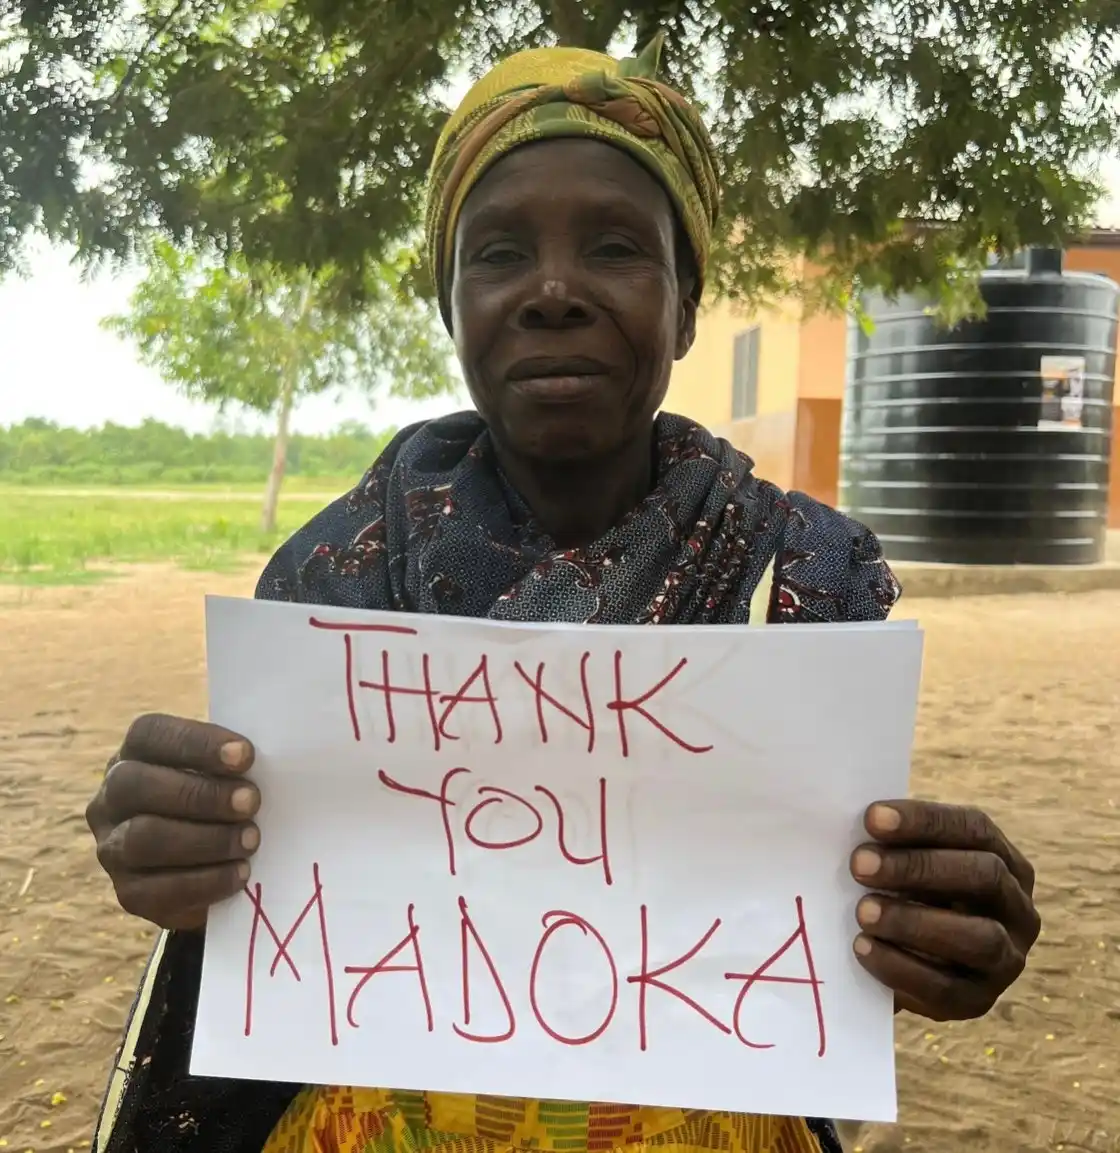 THANK
YOU
MADOKA